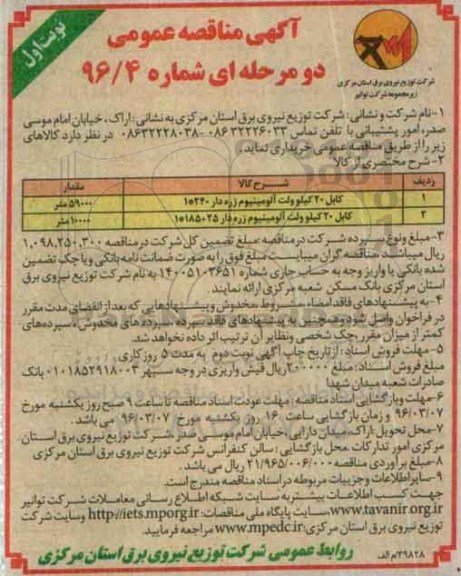 نوبت اول
آگهی مناقصه عمومی
دو مرحله ای شماره ۹۶/۴
شرکت توزیع نیروی برق استان مرکزی
زیرمجموعه شرکت توانیر
۱-نام شرکت و نشانی: شرکت توزیع نیروی برق استان مرکزی به نشانی: اراک، خیابان امام موسی
صدر، امور پشتیبانی با تلفن تماس ۰۸۶۳۲۲۲۶۰۳۳ -۰۸۶۳۲۲۲۸۰۳۸ در نظر دارد کالاهای
زیر را از طریق مناقصه عمومی خریداری نماید.
۲- شرح مختصری از کالا
ردیف شرح کالا مقدار
۱ کابل ۲۰ کیلو ولت آلومینیوم زره دار ۲۴۰*۱ ۵۹۰۰۰ متر
۲ کابل ۲۰ کیلو ولت آلومینیوم زره دار ۱*۱۸۵۰۲۵ ۱۰۰۰۰ متر
۳-مبلغ ونوع سپرده شرکت در مناقصه :مبلغ تضمین کل شرکت در مناقصه ۱,۰۹۸,۲۵۰,۳۰۰
ریال میباشد .مناقصه گران میبایست مبلغ فوق را به صورت ضمانت نامه بانکی و یا چک تضمین
شده بانکی یا واریز وجه به حساب جاری شماره ۱۴۰۰۵۱۰۳۶۵۱ به نام شرکت توزیع نیروی برق
استان مرکزی بانک مسکن شعبه مرکزی ارائه نمایند.
۴- به پیشنهادهای فاقد امضاء ،مشروط ،مخدوش و پیشنهادهایی که بعد از انقضای مدت مقرر
در فراخوان واصل شود و همچنین به پیشنهادهای فاقد سپرده ،سپرده های مخدوش ، سپرده‌های
کمتر از میزان مقرر ،چک شخصی ونظایر آن ترتیب اثر داده نخواهد شد.
۵- مهلت فروش اسناد : از تاریخ چاپ آگهی نوبت دوم به مدت ۵ روز کاری
مبلغ فروش اسناد: مبلغ ۲۰۰۰۰۰ ریال فیش واریزی در وجه سپهر ۰۱۰۱۸۵۲۹۱۸۰۰۳ بانک
صادرات شعبه میدان شهدا
۶-مهلت وبازگشایی اسناد مناقصه : مهلت عودت اسناد مناقصه تا ساعت ۹ صبح روز یکشنبه مورخ
۹۶/۰۳/۰۷ و زمان بازگشایی ساعت ۱۶ روز یکشنبه مورخ ۹۶/۰۳/۰۷ می باشد.
۷-محل تحویل :اراک،میدان دارایی ،خیابان امام موسی صدر ،شرکت توزیع نیروی برق استان
مرکزی امور تدارکات .محل بازگشایی : سالن کنفرانس شرکت توزیع نیروی برق استان مرکزی
۸-مبلغ برآوردی مناقصه ۲۱/۹۶۵/۰۰۶/۰۰۰ ریال می باشد.
۹-سایر اطلاعات وجزییات مربوطه در اسناد مناقصه مندرج است.
جهت کسب اطلاعات بیشتر به سایت شبکه اطلاع رسانی معاملات شرکت توانیر
www.tavanir.org.ir،سایت پایگاه ملی مناقصات: http://iets.mporg.ir وسایت شرکت
توزیع نیروی برق استان مرکزی:www.mpedc.ir مراجعه فرمایید.
۳۹۸۲۸/م الف روابط عمومی شرکت توزیع نیروی برق استان مرکزی